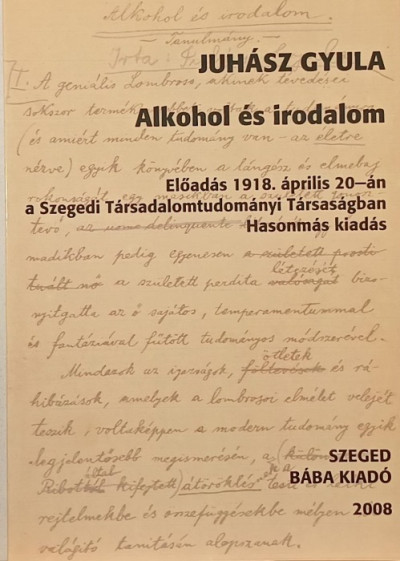 Alkohol és irodalom.
Tanulmány.
Irta:
JUHÁSZ GYULA
I. A geniális Lombroso, akinek tévedései
sokszor
Alkohol és irodalom
(és amiért minden tudomány van - az életre
nézve) egyik könyvében a lángész és elmebaj
Előadás 1918. április 20–án
a Szegedi Társadalomtudományi Társaságban
tevő, az
Hasonmás kiadás
madikban pedig egyenesen a született prosti
létezését
tuált nő a született perdita valóságát bizo-
nyitgatta az ő sajátos, temperamentummal
és fantáziával fűtött tudományos módszerével.
ötletek
Mindazok az igazságok, föltevések és rá-
hibázások, amelyek a lombrosoi elmélet velejét
teszik, voltaképpen a modern tudomány egyik
legjelentősebb megismerésén, a
SZEGED
által
Ribot kifejtett) átöröklés testi és lelki
BÁBA KIADÓ
rejtelmekbe és összefüggésekbe mélyen
2008
világító tanításán alapszanak.